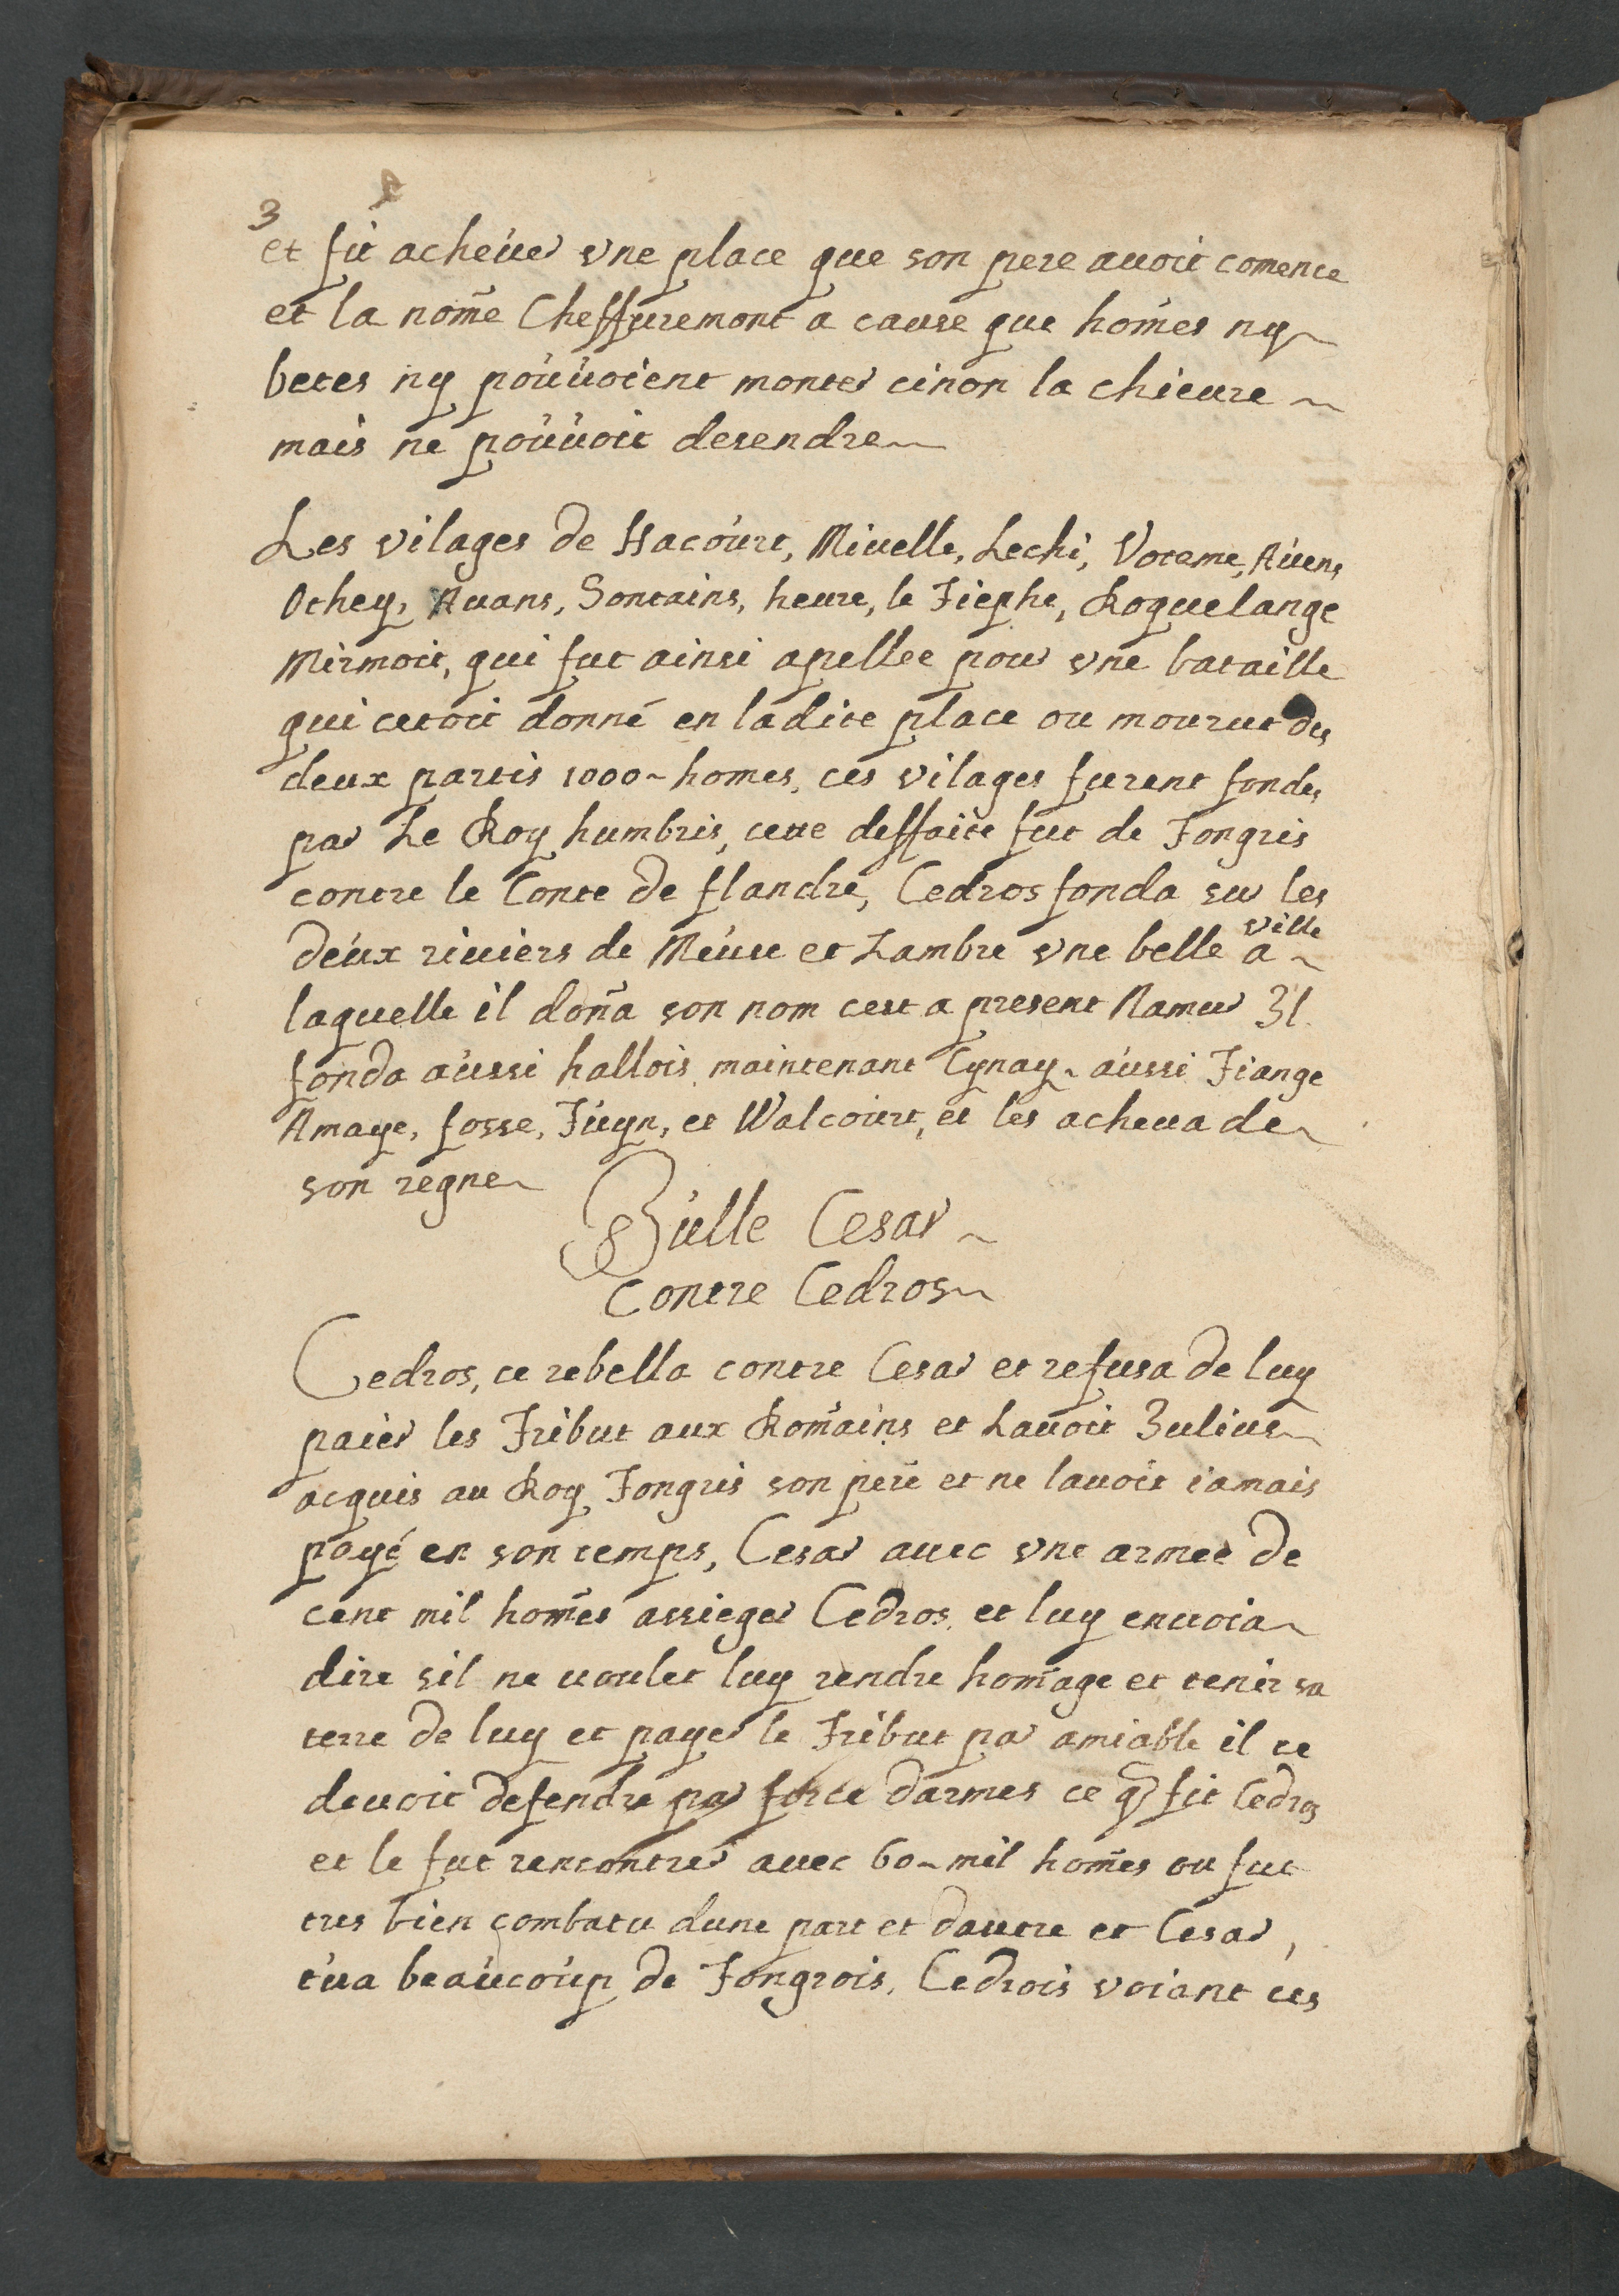 3
et fit achéuer vne place que son pere auoit comence
et la nom̃e Cheffuremont a cause que hom̃es ny
betes ny poúuoient monter cinon la chieure
mais ne poúuoit desendre
Les vilages de Hacóurt, Niuelle, Lechi, Voteme, Aúens
Othey, Auans, Sontains, heure, le Tiephe, Roquelange
Mirmoit, qui fut ainsi apellee pour vne bataille
qui cetoit donné en ladite place ou mourut des
deux partis 1000 homes, ces vilages furent fondes
par Le Roy humbris, cette deffaite fut de Tongris
contre le Conte de flandre, Cedros fonda sur les
déux riuiers de Méuse et Sambre vne belle ville a
laquelle il doña son nom cest a present Namur Il
fonda aússi hallois maintenant Cynay aússi Tiange
Amaye, fosse, Túyn, et Walcoúrt, et les acheua de
son regne
Júlle Cesar
Contre Cedros
Cedros, ce rebella contre Cesar et refusa de luy
paier les Tribut aux Romains et Lauoit Julius
acquis au Roy Tongris son pere et ne lauoit iamais
payé en son temps, Cesar auec vne armee de
cent mil hom̃es assieger Cedros et luy enuoia
dire sil ne voulet luy rendre hom̃age et tenir sa
terre de luy et payer le Tribut par amiable il ce
deuoit defendre par force darmes ce q̃ fit Cedros
et le fut rencontrer auec 60 mil hom̃es ou fut
tres bien combatu dune part et dautre et Cesar,
túa beaúcoúp de Tongrois, Cedrois voiant ces